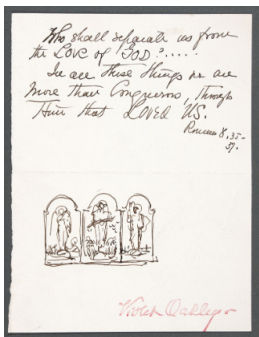 Who shall separate us from
the LOVE of GOD?.....
In all these things we are
More than Conquerors, through
Him that LOVED US.
Romans 8, 35-
37.
Violet Oakley